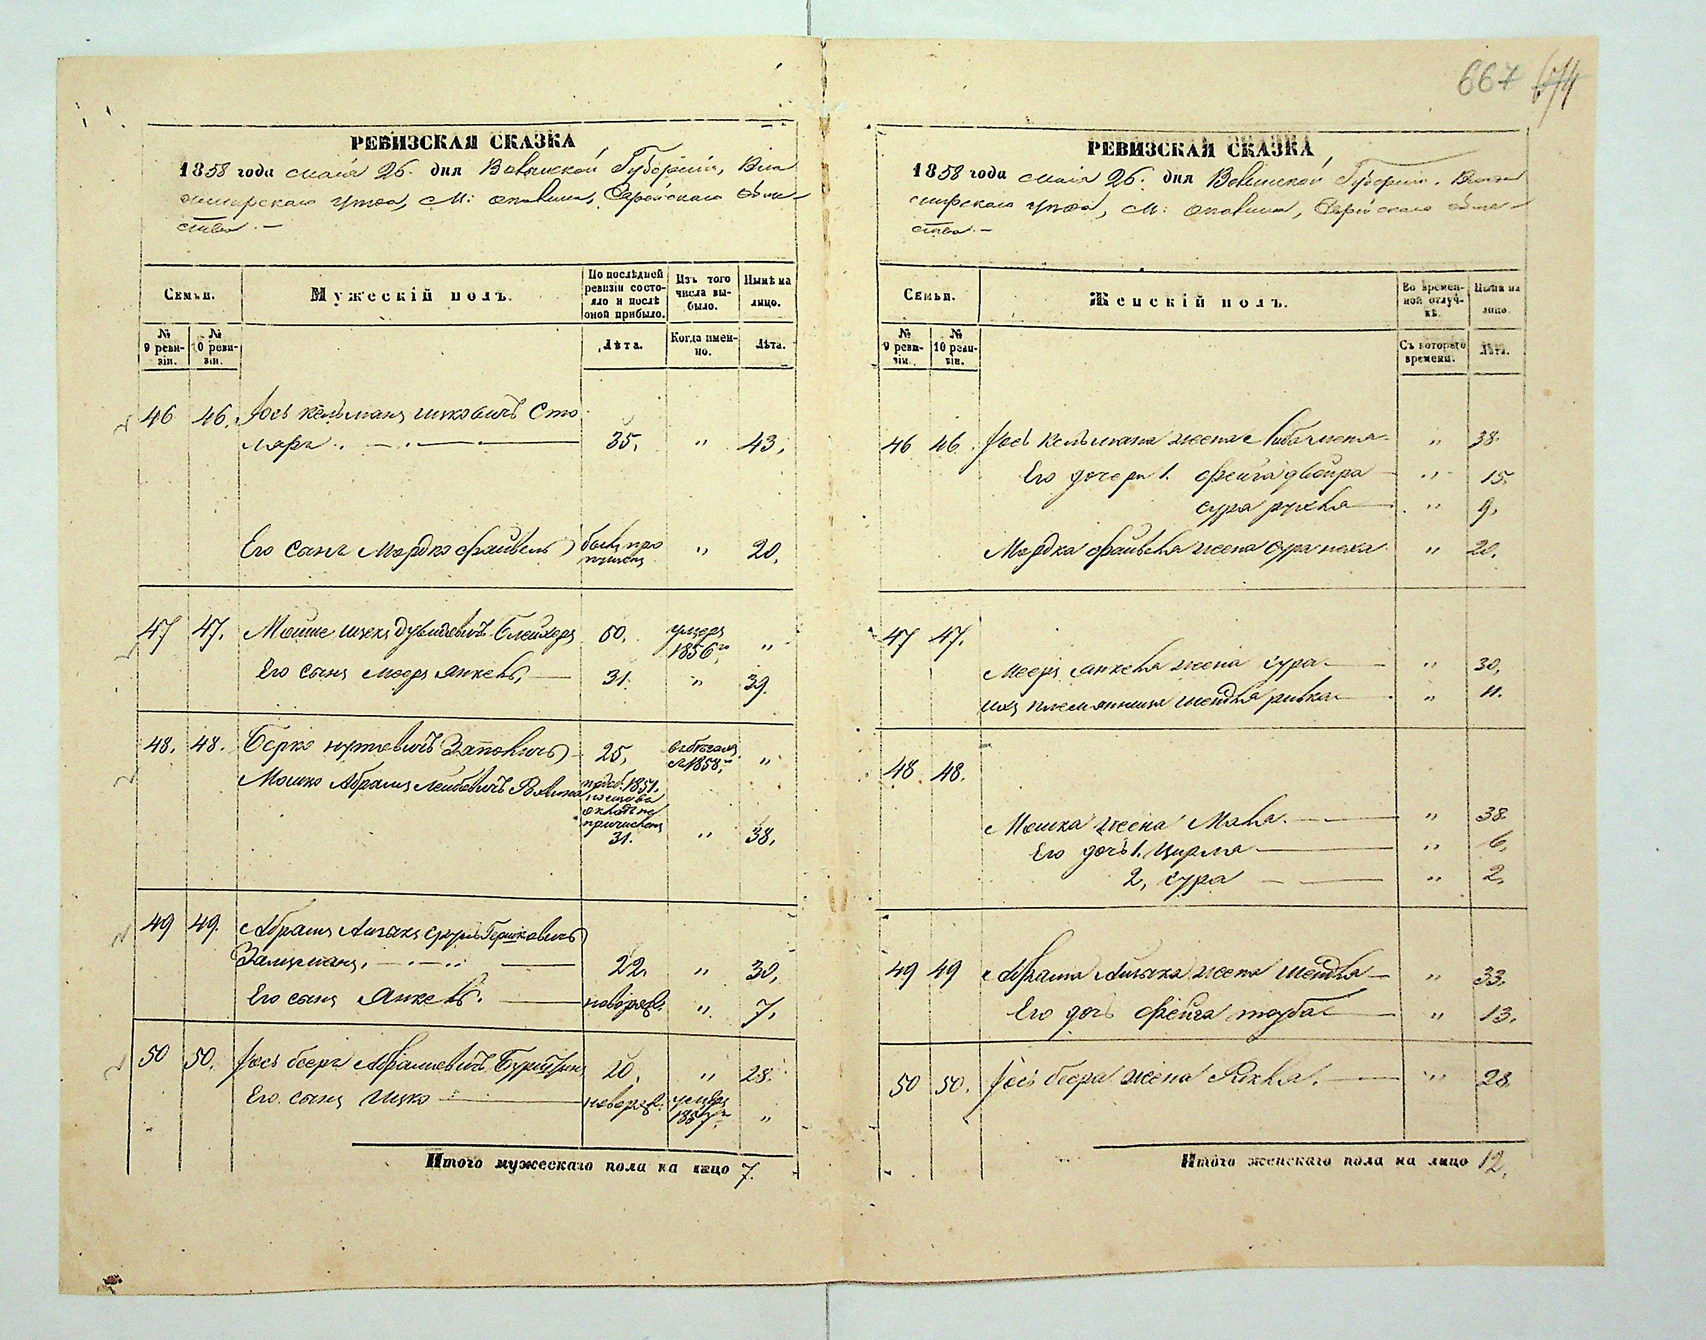 667 674
РЕВИЗСКАЯ СКАЗКА
1858 года мая 26 дня Волынской Губерніи, Вла
димірскаго уѣзда, М: Еврейскаго обще-
ства.—
Семьи.
Мужескій полъ.
По послѣдней ревизіи состояло и послѣ оной прибыло.
Изъ того числа выбыло.
Нынѣ на лицо.
№ 9 ревизіи.
№ 10 ревизіи.
Лѣта.
Когда именно.
Лѣта.
46 46. Іось Кельманъ Ицковичъ Сто
ляръ 35. " 43.
Его сынъ Мордко Файвель былъ пропущенъ " 20.
47 47. Мошко Ицекъ Дувидовичъ Блейхеръ 60. умеръ 1856го "
Его сынъ Мееръ Янкель 31. " 39.
48. 48. Берко 25. въ 1858 "
Мошко Абрамъ Лейбовичъ 1851. причисленъ 31. " 38.
49 49. Абрамъ Айзыкъ Сруль Гершковичъ
Зальцманъ. 22. " 30,
Его сынъ Янкель. новорожд. " 7.
50 50. Іось Бееръ Абрамовичъ 20. " 28.
Его сынъ Ицко новорожд. умеръ 1857го "
Итого мужескаго пола на лицо 7.
РЕВИЗСКАЯ СКАЗКА
1858 года мая 26 дня Волынской Губерніи, Влади
мірскаго уѣзда, М: Еврейскаго обще-
ства.—
Семьи.
Женскій полъ.
Во временной отлучкѣ.
Нынѣ на лицо.
№ 9 ревизіи.
№ 10 ревизіи.
Съ котораго времени.
Лѣта.
46 46. Іось Кельмана жена " 38.
Его дочери 1. Фейга Двойра " 15.
Сура Рухля " 9.
Мордка Файвеля жена Сура " 20.
47 47.
Меера Янкеля жена Сура " 30,
Ихъ племянница Шейндля Ривка " 11.
48 48.
Мошка жена Малка " 38.
Его дочь 1. Цирля " 6.
2, Сура " 2.
49 49 Абрама Айзыка жена Шейндля " 33.
Его дочь Фейга Тауба " 13.
50 50. Іось Беера жена Рухля. " 28
Итого женскаго пола на лицо 12.